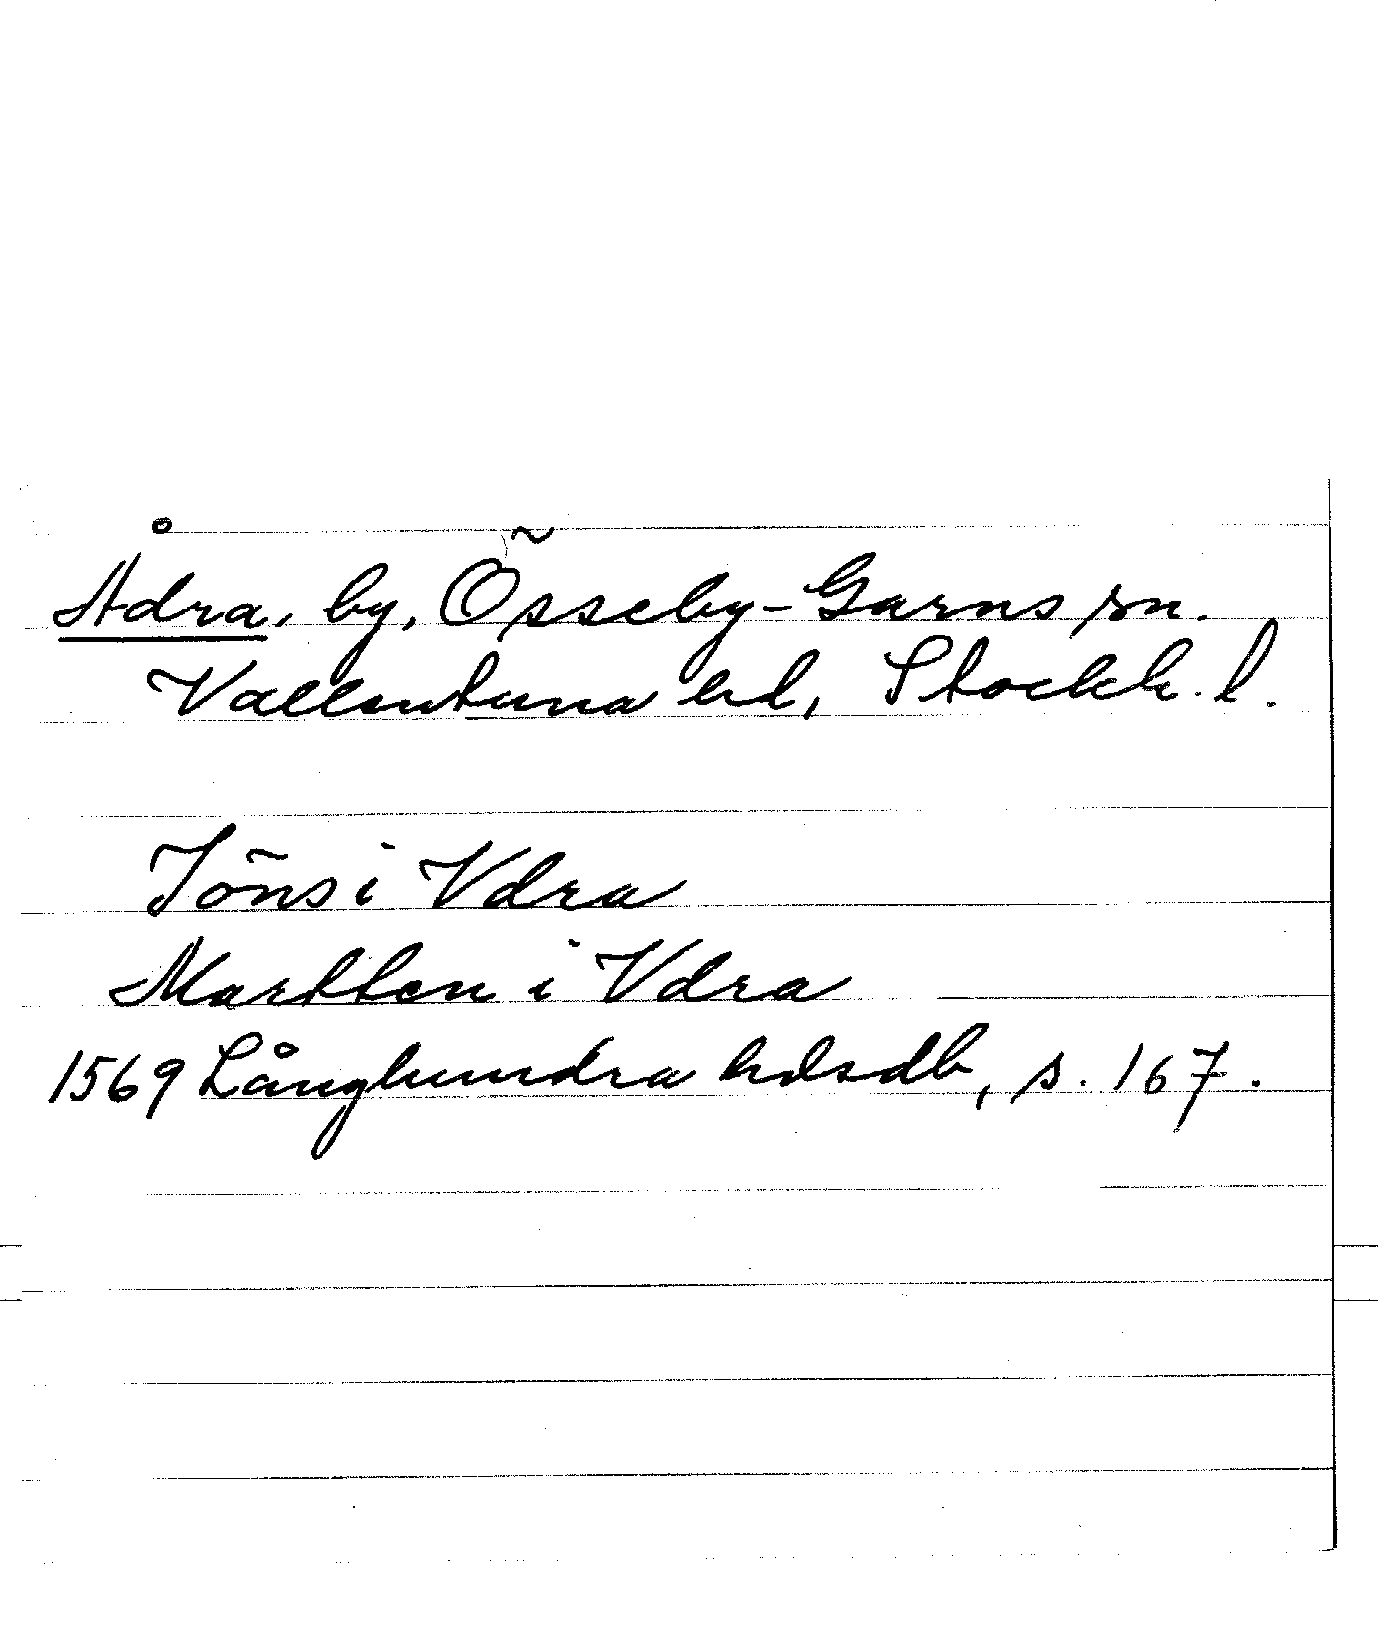 Ådra, by, Össeby-Garns sn.
Vallentuna hd, Stockh. l.
Jöns i Vdra
Martten i Vdra
1569 Långhundra hdsdb, s. 167.